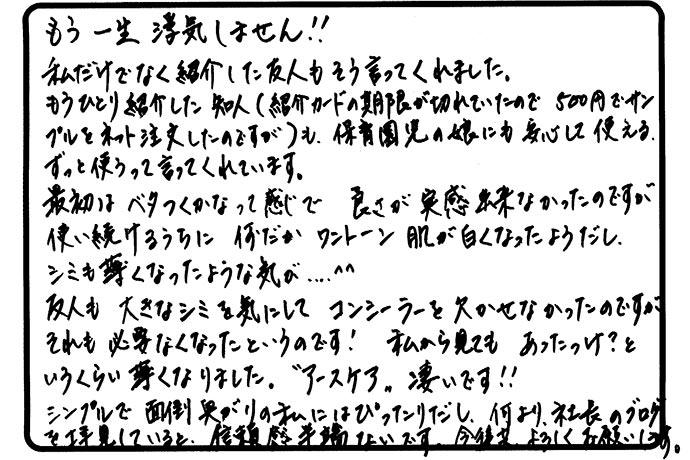 もう一生 浮気しません!!
私だけでなく紹介した友人もそう言ってくれました。
もうひとり紹介した知人(紹介カードの期限が切れていたので 500円でサン
プルをネット注文したのですが)も、保育園児の娘にも安心して使える、
ずっと使うって言ってくれています。
最初は ベタつくかなって感じで 良さが実感出来なかったのですが
使い続けるうちに 何だか ワントーン 肌が白くなったようだし、
シミも薄くなったような気が....^^
友人も 大きなシミを気にして コンシーラーを欠かせなかったのですが
それも 必要なくなったというのです! 私から見ても あったっけ?と
いうくらい薄くなりました。"アースケア„ 凄いです!!
シンプルで 面倒臭がりの私にはぴったりだし、何より、社長のブログ
を拝見していると、信頼感半端ないです。今後も よろしくお願いします。